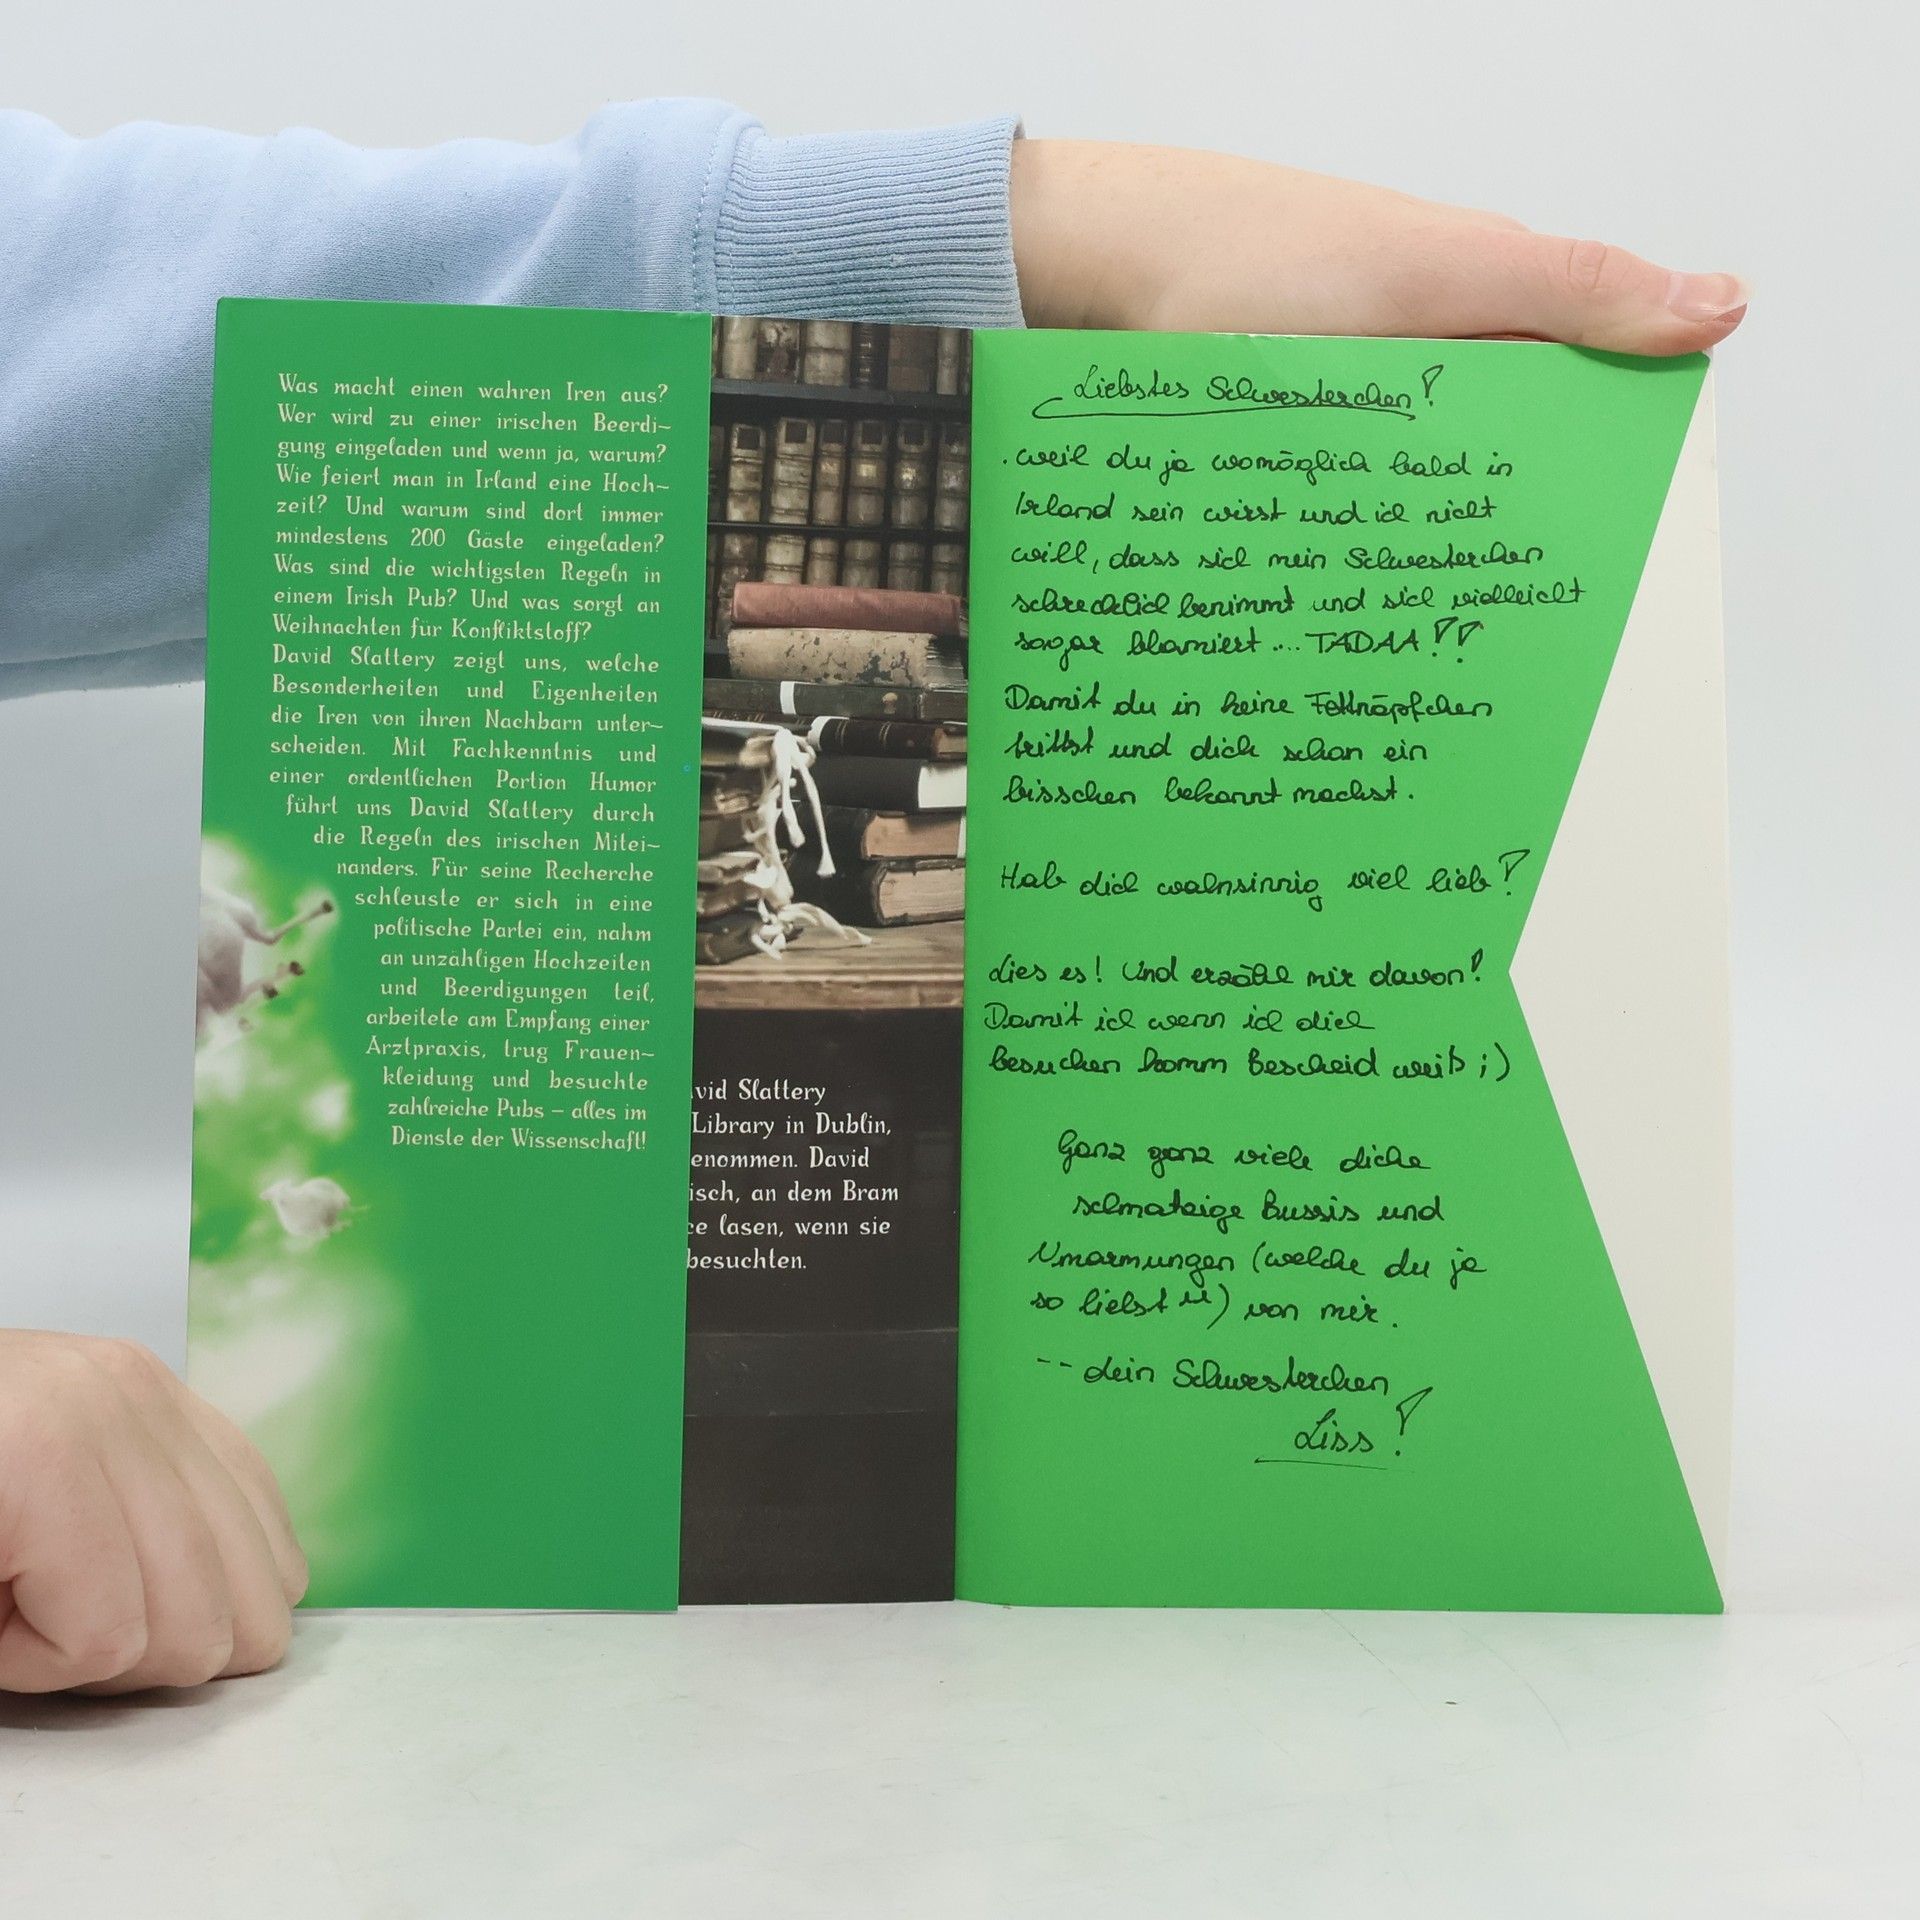 Was macht einen wahren Iren aus?
Wer wird zu einer irischen Beerdi-
gung eingeladen und wenn ja, warum?
Wie feiert man in Irland eine Hoch-
zeit? Und warum sind dort immer
mindestens 200 Gäste eingeladen?
Was sind die wichtigsten Regeln in
einem Irish Pub? Und was sorgt an
Weihnachten für Konfliktstoff?
David Slattery zeigt uns, welche
Besonderheiten und Eigenheiten
die Iren von ihren Nachbarn unter-
scheiden. Mit Fachkenntnis und
einer ordentlichen Portion Humor
führt uns David Slattery durch
die Regeln des irischen Mitei-
nanders. Für seine Recherche
schleuste er sich in eine
politische Partei ein, nahm
an unzähligen Hochzeiten
und Beerdigungen teil,
arbeitete am Empfang einer
Arztpraxis, trug Frauen-
kleidung und besuchte
zahlreiche Pubs – alles im
Dienste der Wissenschaft!
vid Slattery
Library in Dublin,
enommen. David
isch, an dem Bram
ce lasen, wenn sie
besuchten.
Liebstes Schwesterchen!
.weil du ja womöglich bald in
Irland sein wirst und ich nicht
will, dass sich mein Schwesterchen
schrecklich benimmt und sich vielleicht
sogar blamiert .... TADAA!!
Damit du in keine Fettnäpfchen
trittst und dich schon ein
bisschen bekannt machst.
Hab dich wahnsinnig viel lieb!
Lies es! Und erzähl mir davon!
Damit ich wenn ich dich
besuchen komm Bescheid weiß ;)
Ganz ganz viele dicke
schmatzige Bussis und
Umarmungen (welche du ja
so liebst) von mir.
-- dein Schwesterchen
Liss!